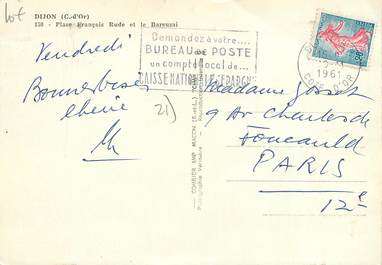 lot
DIJON (C.-d'Or)
150 - Place François Rude et le Bareuzai
Demandez à votre...
BUREAU DE POSTE
un compte local de...
CAISSE NATIONALE D'EPARGNE
1961
Vendredi
Bonnes bises
chérie
21)
COMBIER IMP. MACON
Madame Josset
9 Av Charles de
Foucauld
PARIS
12e